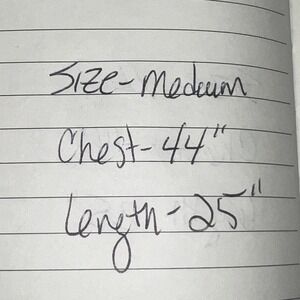 Size- Medium
Chest- 44"
Length- 25"